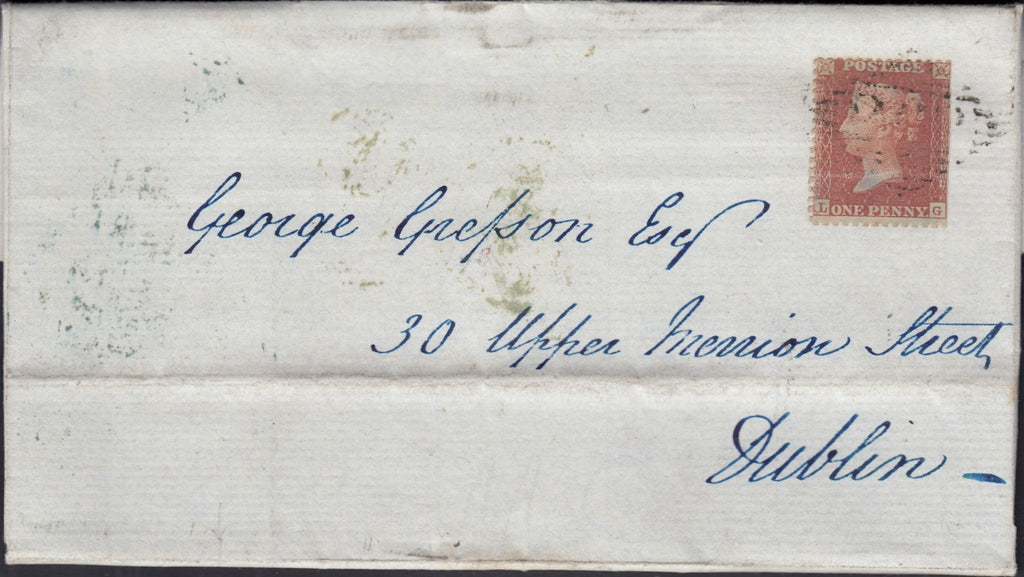 POSTAGE
L ONE PENNY G
George Greſson Esq
30 Upper Merrion Street,
Dublin —